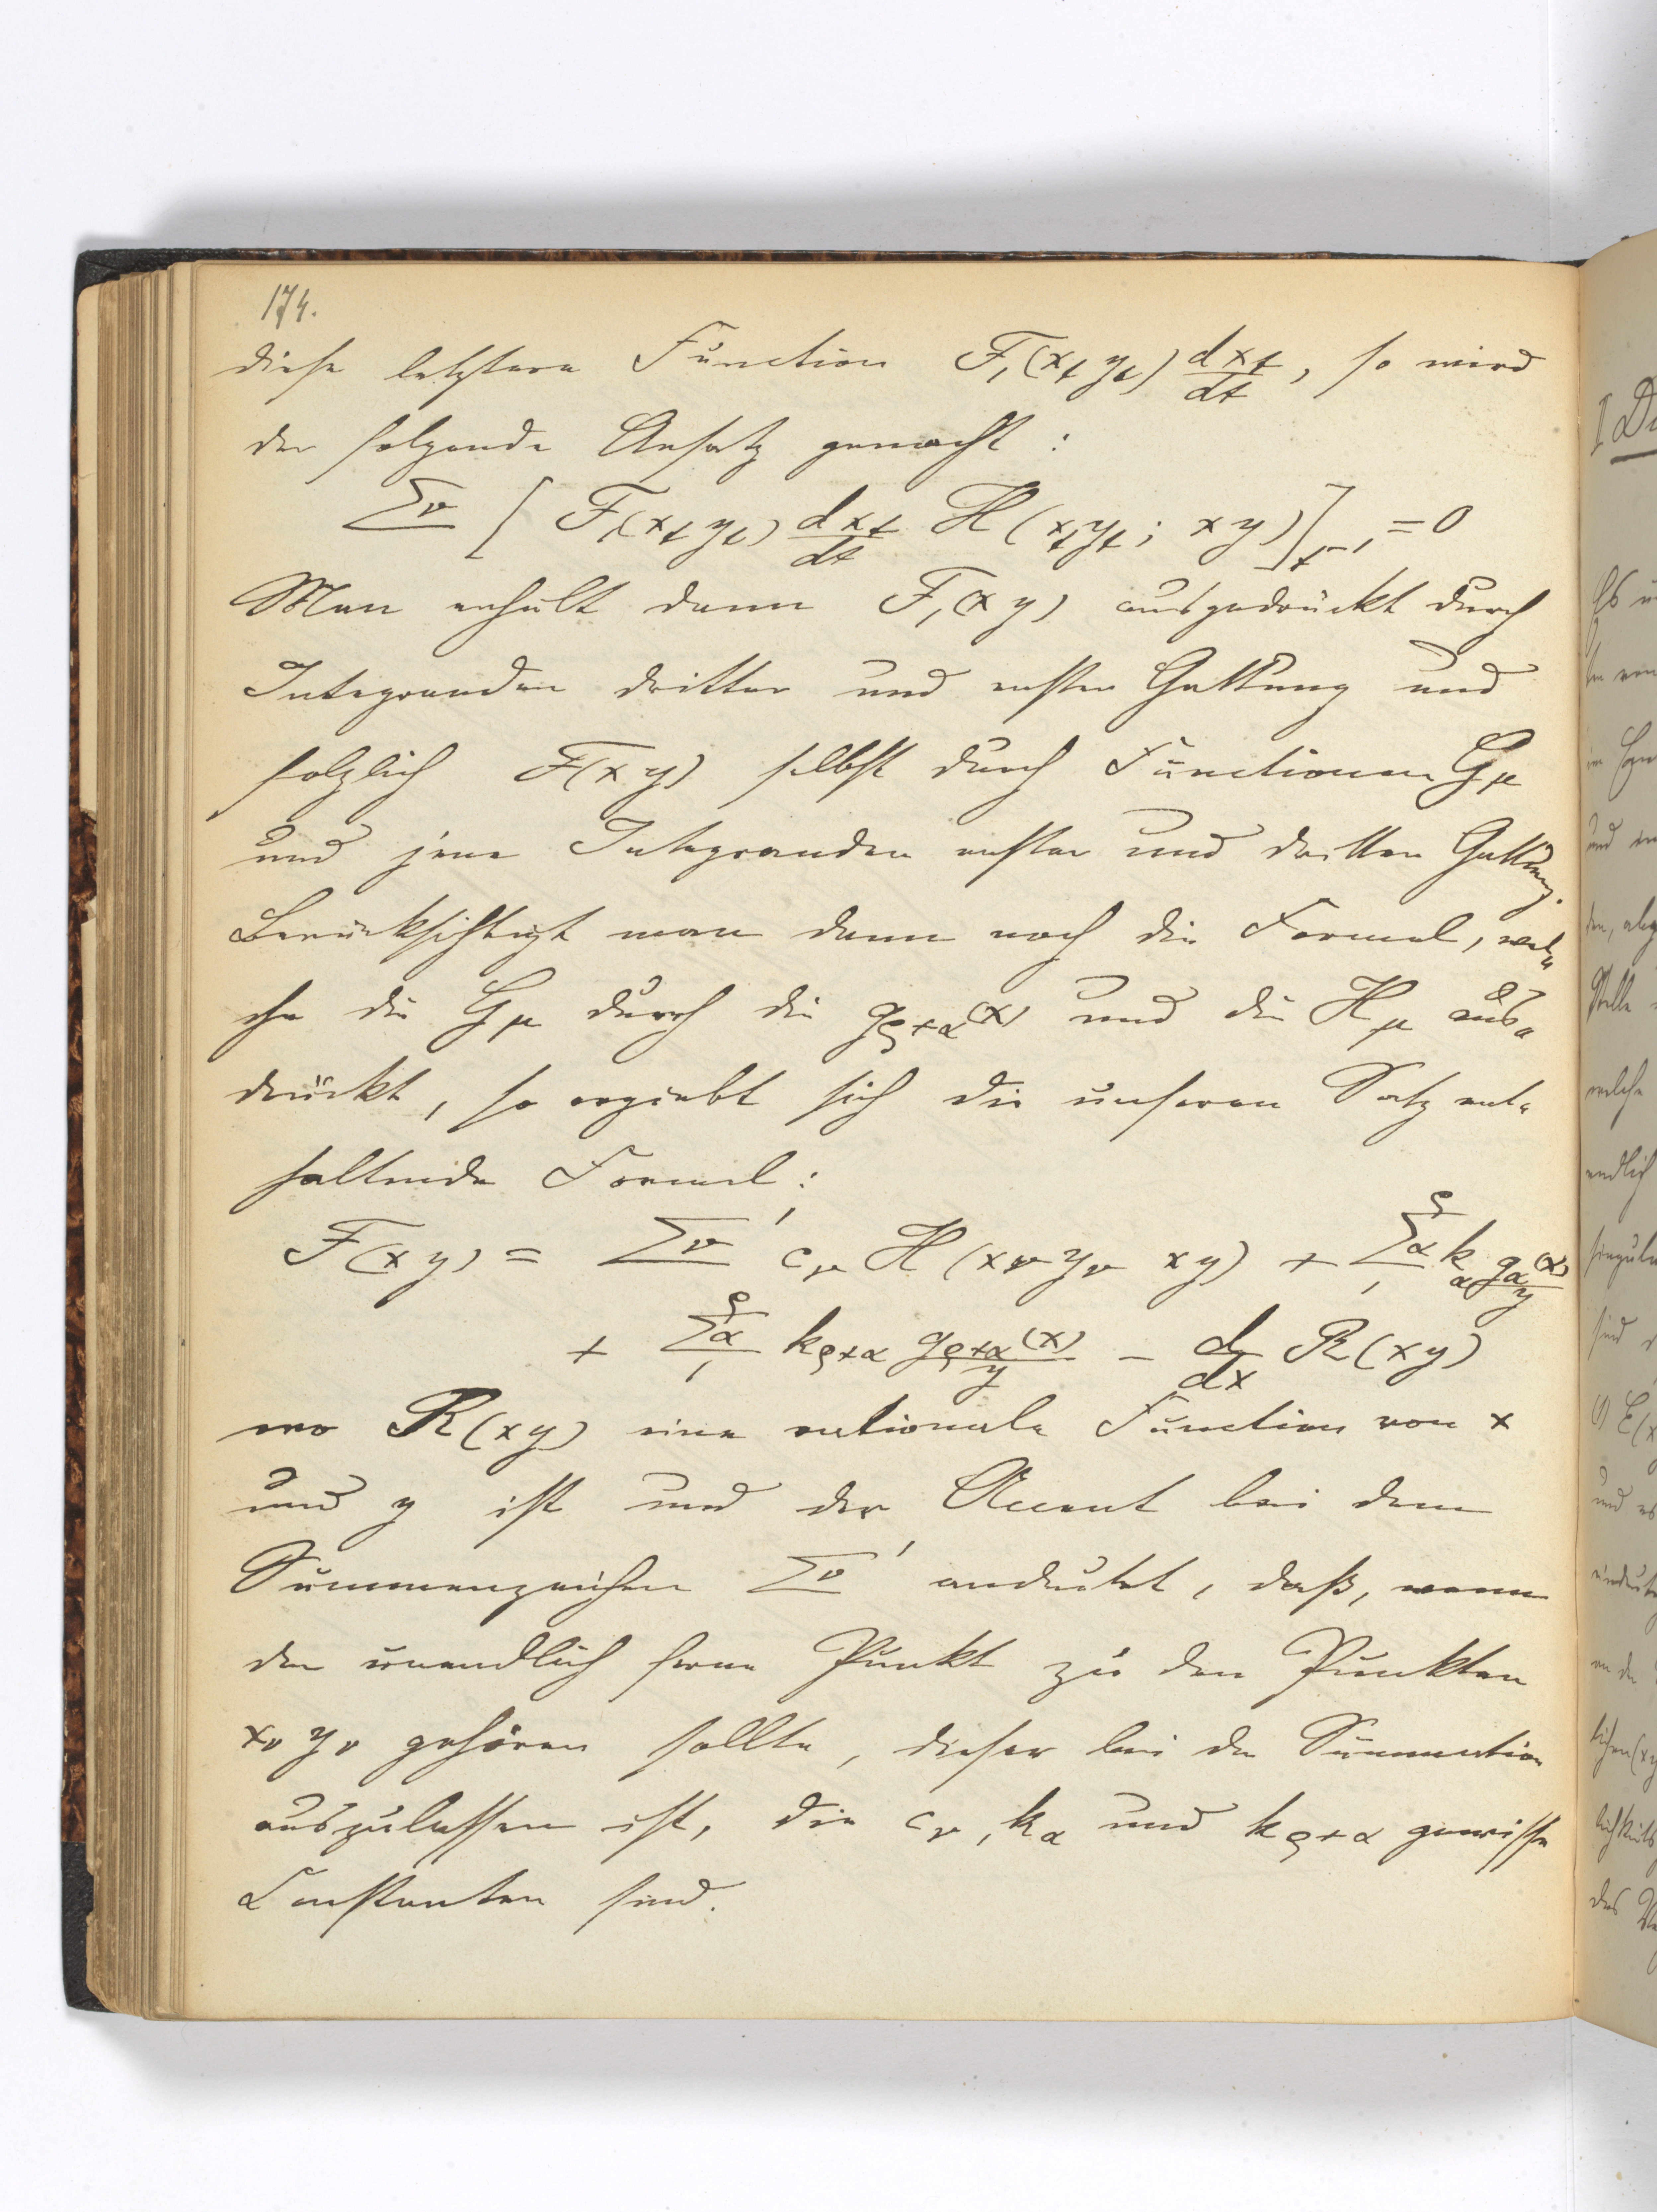 174.
diese letztere Function F₁(x_t y_t) dx_t/dt, so wird
der folgende Ansatz gemacht:
Σν [F₁(x_t y_t) dx_t/dt H(x_t y_t; xy)]_{t⁻¹} = 0
Man erhält dann F₁(xy) ausgedrückt durch
Integranden dritter und erster Gattung und
folglich F(xy) selbst durch Functionen G_μ
und jene Integranden erster und dritter Gattung.
Berücksichtigt man dann noch die Formel, wel-
che die G_μ durch die g_{ρ+α}(x) und die H_μ aus-
drückt, so ergiebt sich die unseren Satz ent-
haltende Formel:
F(xy) = Σν' c_ν H(x_ν y_ν xy) + Σ_{α=1}^{ρ} k_α g_α(x)/y
+ Σ_{α=1}^{ρ} k_{ρ+α} g_{ρ+α}(x)/y − d/dx R(xy)
wo R(xy) eine rationale Function von x
und y ist und der Accent bei dem
Summenzeichen Σν' andeutet, daß, wenn
der unendlich ferne Punkt zu den Punkten
x_ν y_ν gehören sollte, dieser bei der Summation
auszulassen ist, die c_ν, k_α und k_{ρ+α} gewisse
Constanten sind.